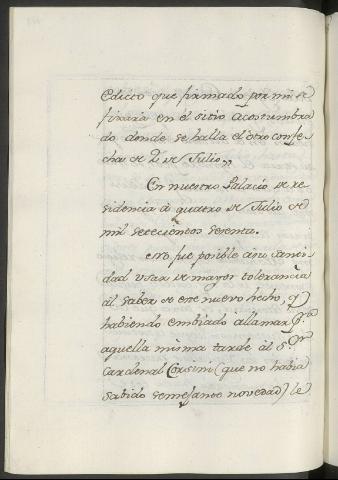 Edicto que firmado por mi se
fixará en el sitio acostumbra
do donde se halla el otro con fe
cha de 2 de Julio,,
En nuestro Palacio de re
sidencia à quatro de Julio de
mil setecientos sesenta.
No fue posible a su Santi
dad usar de mayor tolerancia
al saber de este nuevo hecho, q.
habiendo embiado a llamar p.ª
aquella misma tarde àl S.or
Cardenal Corsini (que no habia
sabido semejante novedad) le